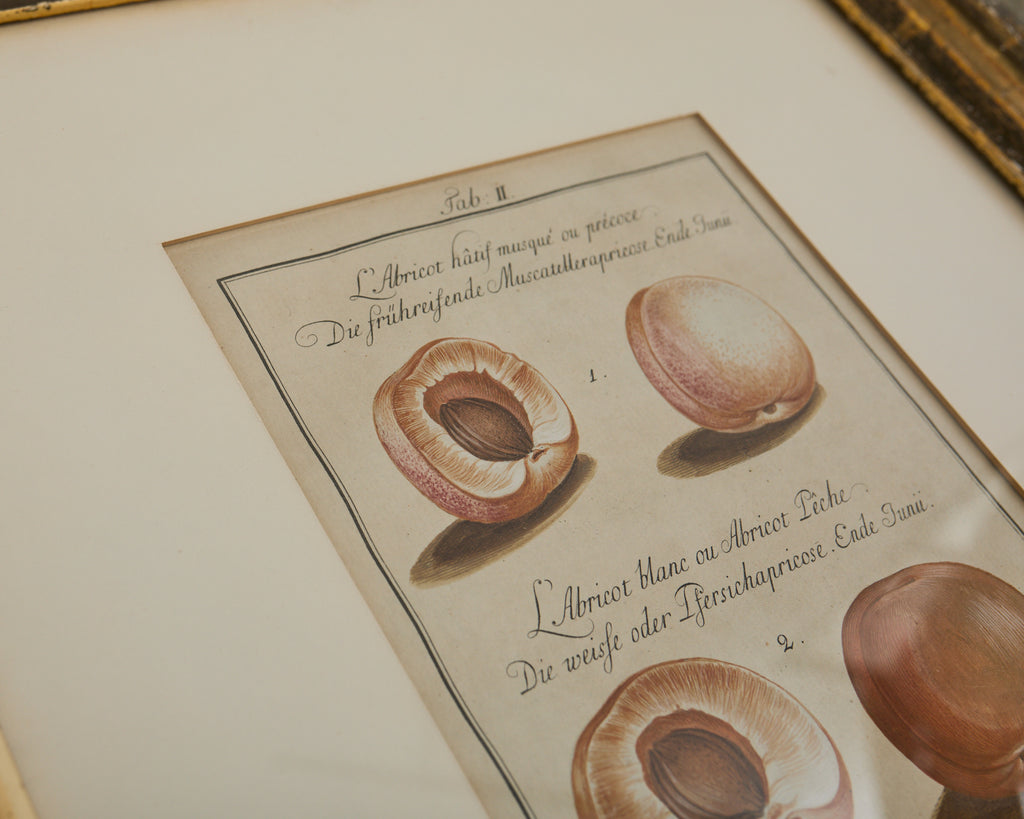 Tab: II.
L'Abricot hâtif musqué ou précoce.
Die frühreifende Muscatellerapricose. Ende Junii.
1.
L'Abricot blanc ou Abricot Pêche.
Die weisse oder Pfersichapricose. Ende Junii.
2.